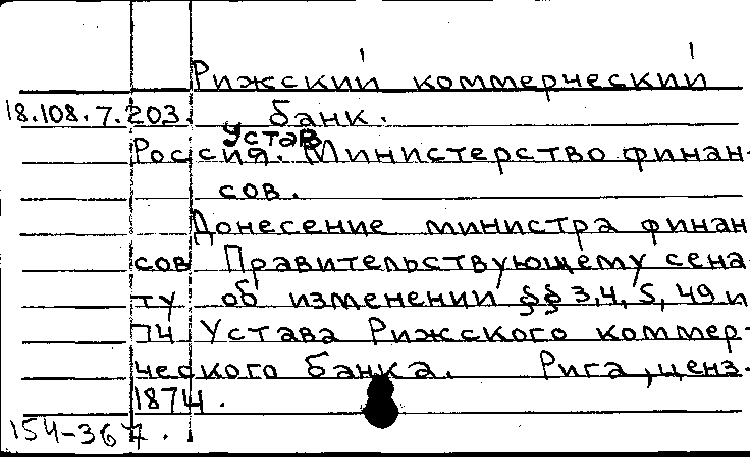 Рижский коммерческий
18.108.7.203. банк.
Устав
Россия. Министерство финан-
сов.
Донесение министра финан
сов Правительствующему сена-
ту об изменении §§ 3,4, 5, 49 и
74 Устава Рижского коммер-
ческого банка. Рига, ценз.
1874.
154-367.